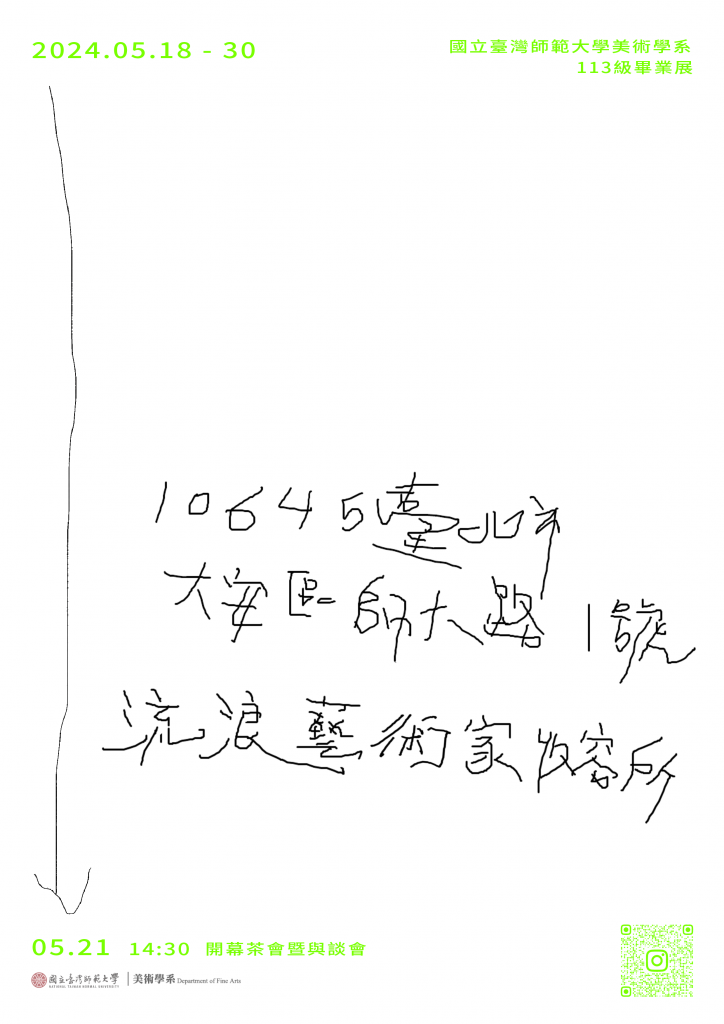 2024.05.18 - 30
國立臺灣師範大學美術學系
113級畢業展
10645臺北市
大安區師大路1號
流浪藝術家收容所
05.21 14:30 開幕茶會暨與談會
國立臺灣師範大學 美術學系 Department of Fine Arts
NATIONAL TAIWAN NORMAL UNIVERSITY